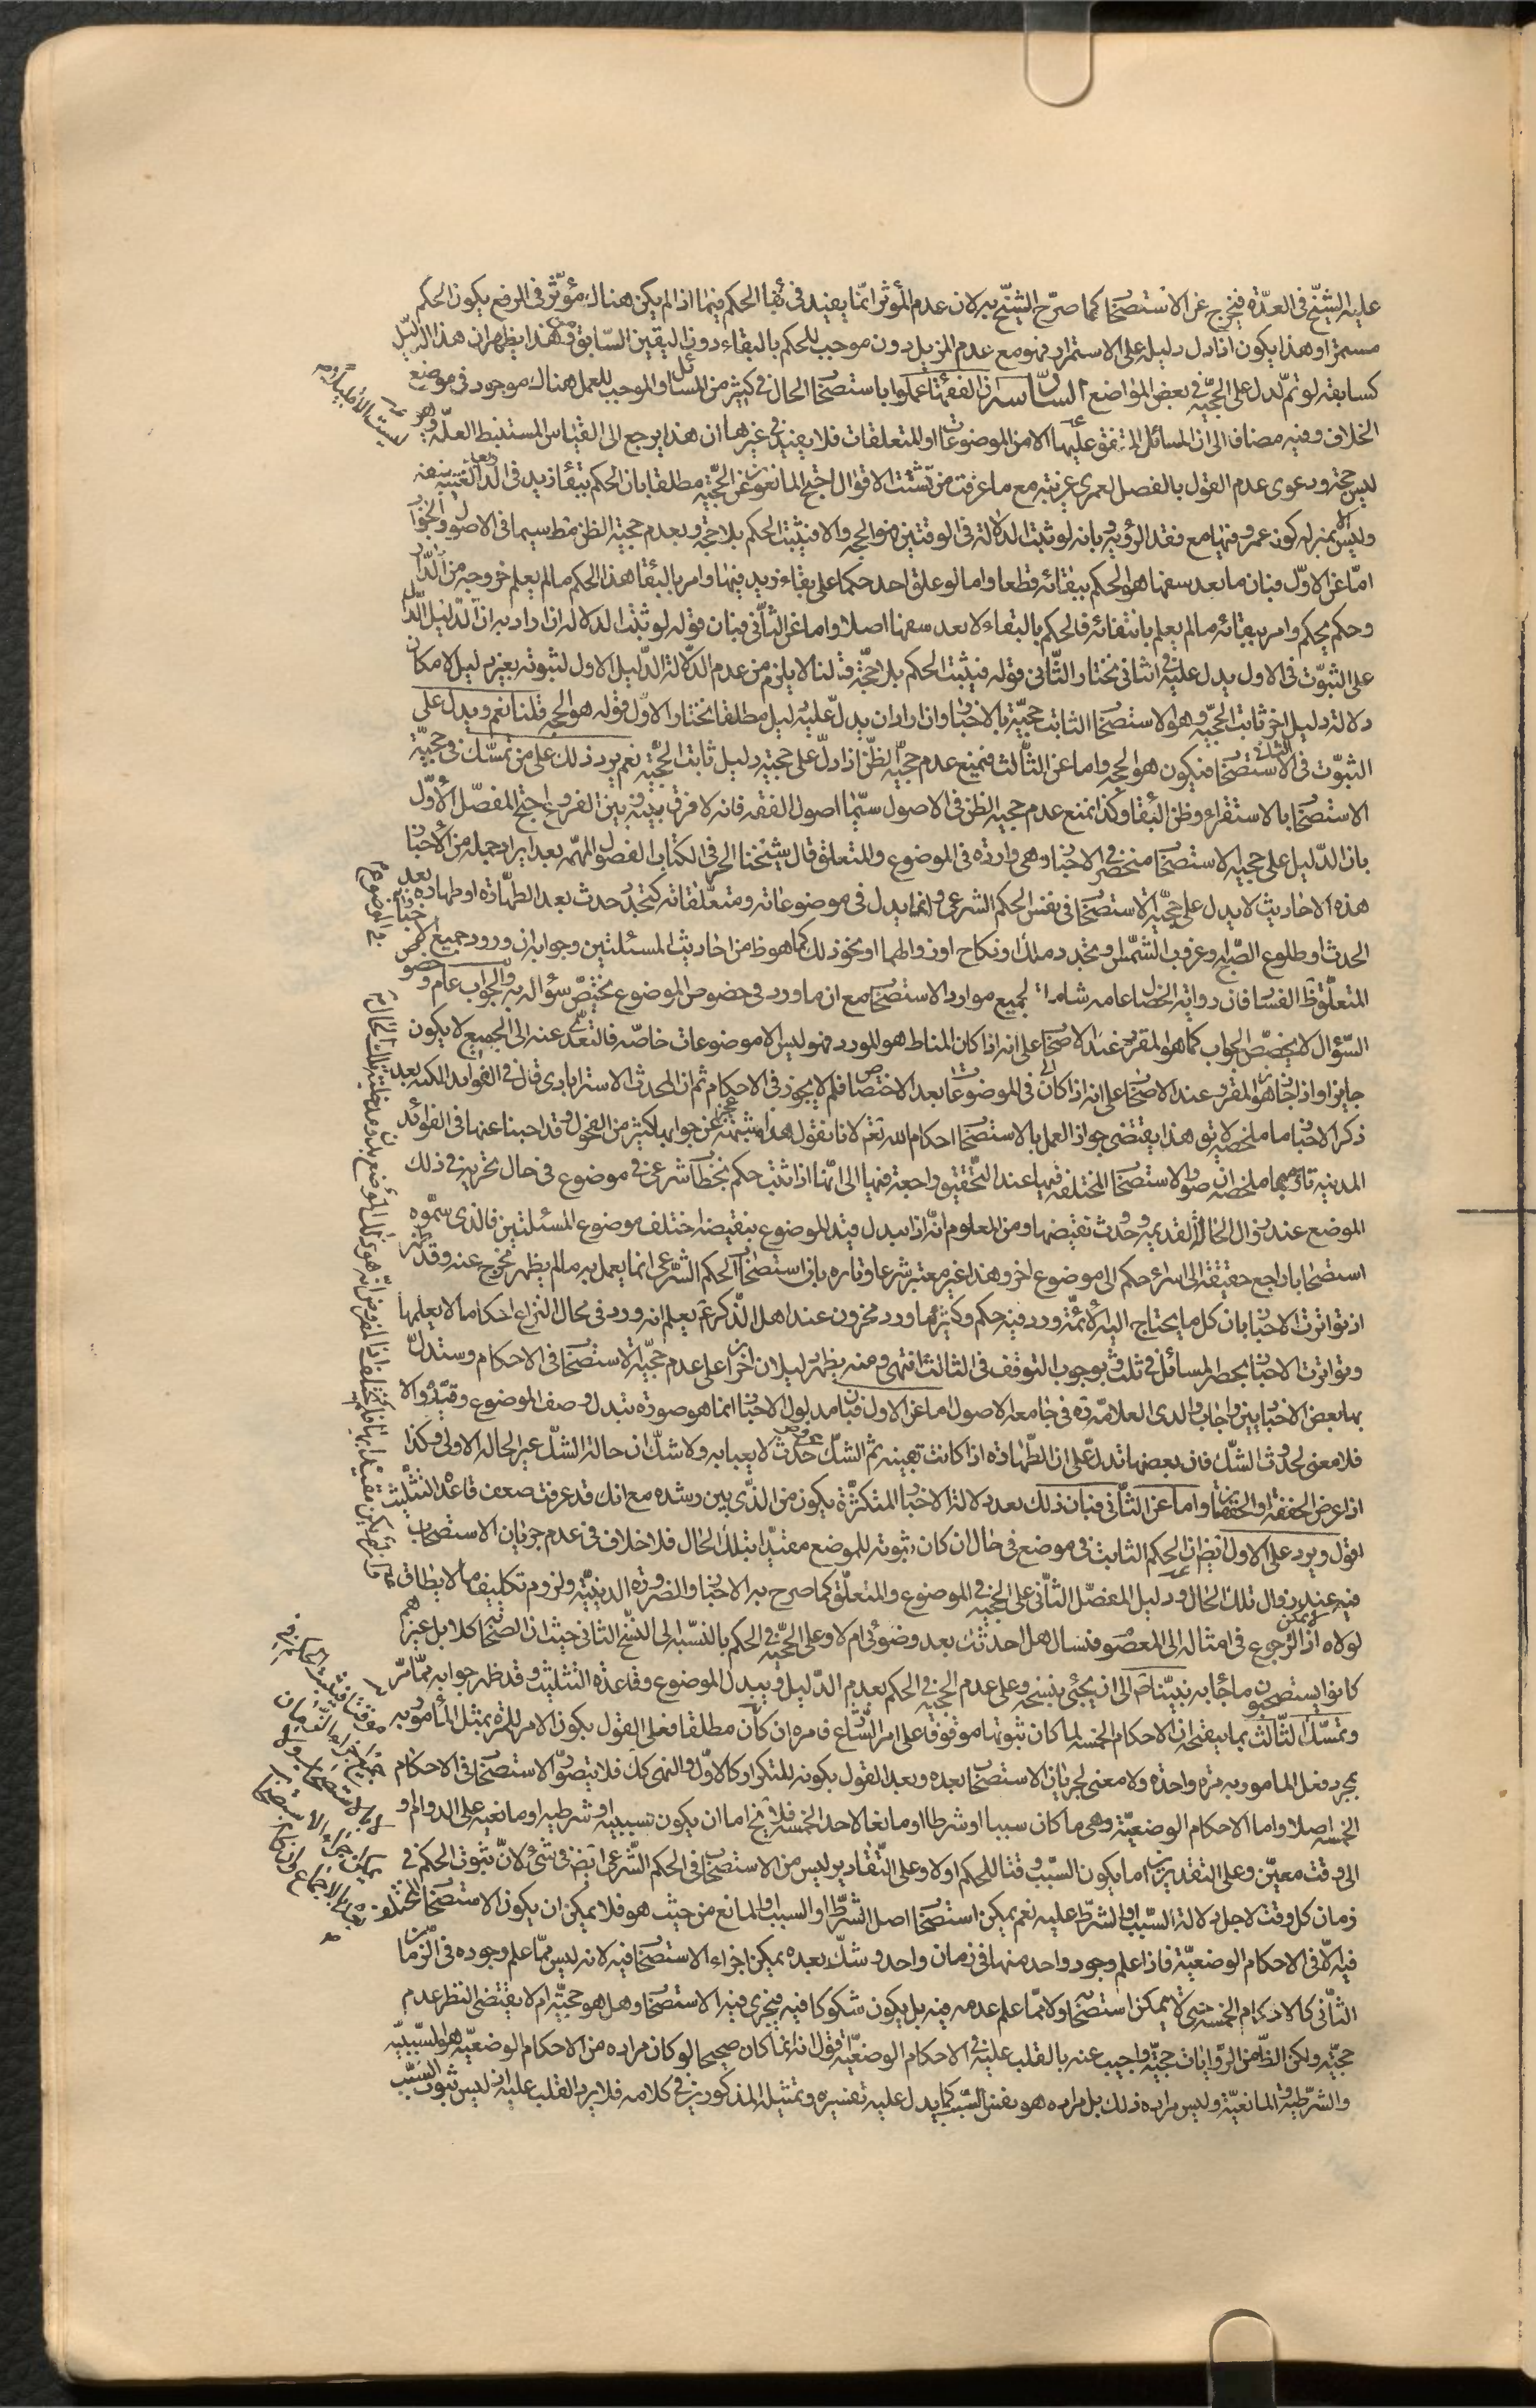 عليه الشيخ في العدّة فيخرج عن الاستصحاب كما صرّح الشيخ به لان عدم المؤثر انما يفيد في بقاء الحكم فيما اذا لم يكن هناك مؤثر في الرفع يكون الحكم
مستمرا وهذا يكون اذا دل دليله على الاستمرار فهو مع عدم المزيل دون موجب للحكم بالبقاء دون اليقين السابق فمن هذا يظهر ان هذا الدليل
كسابقه لو تم لدل على الحجية في بعض المواضع السادس ان الفقهاء عملوا باستصحاب الحال في كثير من المسائل والموجب للعمل هناك موجود في موضع
الخلاف وفيه مضافا الى ان المسائل المتفق عليها الا من الموضوعات او المتعلقات فلا يفيد في غيرها ان هذا يرجع الى القياس المستنبط العلة وهو
ليس حجة ودعوى عدم القول بالفصل لعمري غريبة مع ما عرفت من تشتت الاقوال احتج المانعون عن الحجية مطلقا بان الحكم ببقاء زيد في الدار بعد الغيبة عنه
وليس الا بمنزلة كون عمرو فيها مع فقد الرؤية وبانه لو ثبت الدلالة في الوقتين فهو الحجة والا فيثبت الحكم بلا حجة وبعدم حجية الظن قط سيما في الاصول والجواب
اما عن الاول فبان ما بعد سفها هو الحكم ببقائه قطعا واما لو علق احد حكما على بقاء زيد فيها وامر بالبقاء هذا الحكم ما لم يعلم خروجه من الدار
وحكم يحكم وامر ببقائه ما لم يعلم بانتفائه فالحكم بالبقاء لا بعد سفها اصلا واما عن الثاني فبان قوله لو ثبت الدلالة ان اراد به ان الدليل الدال
على الثبوت في الاول يدل عليه في الثاني نختار الثاني قوله فيثبت الحكم بلا حجة قلنا لا يلزم من عدم الدلالة الدليل الاول لثبوته بغير دليل لامكان
دلالة دليل اخر ثابت الحجية وهو الاستصحاب الثابت حجية بالاخبار وان اراد ان يدل عليه دليل مطلقا نختار الاول قوله هو الحجة قلنا نعم ويدل على
الثبوت في الثاني الاستصحاب فيكون هو الحجة واما عن الثالث فنمنع عدم حجية الظن اذا دل على حجيته دليل ثابت الحجية نعم يرد ذلك على من تمسك في حجية
الاستصحاب بالاستقراء وظن البقاء وكذا نمنع عدم حجية الظن في الاصول سيما اصول الفقه فانه لا فرق بينه وبين الفروع احتج المفصل الاول
بان الدليل على حجية الاستصحاب منحصر في الاخبار وهي واردة في الموضوع والمتعلق قال شيخنا الحر في الكتاب الفصول المهمة بعد ايراد جملة من الاخبار
هذه الاحاديث لا يدل على حجية الاستصحاب في نفس الحكم الشرعي وانما يدل في موضوعاته ومتعلقاته كتجدد حدث بعد الطهارة او طهارة بعد
الحدث او طلوع الصبح او غروب الشمس وتجدد ملك او نكاح او زوالهما او نحو ذلك كما هو ظ من احاديث المسئلتين وجوابه ان ورود جميع الاخبار في الموضوع
المتعلق ظ الفساد فان رواية الخصال عامة شاملة لجميع موارد الاستصحاب مع ان ما ورد في خصوص الموضوع يختص سؤاله به والجواب عام وخصوص
السؤال لا يخصص الجواب كما هو المقرر عند الاصحاب على انه اذا كان المناط هو المورد فهو ليس الا موضوعات خاصة فالتعدي عنه الى الجميع لا يكون
جايزا واذا جاز هو المقرر عند الاصحاب على انه اذا كان في الموضوعات بعد الاختصاص فلم لا يجوز في الاحكام ثم ان المحدث الاسترابادي قال في الفوايد المكية بعد
ذكر الاخبار ما ملخصه لا يق هذا يقتضي جواز العمل بالاستصحاب احكام الله تعم لانا نقول هذه شبهة عجز عن جوابها كثير من الفحول وقد اجبنا عنها في الفوائد
المدنية تارة بما ملخصه ان صور الاستصحاب المختلف فيها عند التحقيق راجعة فيها الى انا اذا ثبت حكم بخطاب شرعي في موضوع في حال نجريه في ذلك
الموضع عند زوال الحالة القديمة وحدوث نقيضها ومن المعلوم انه اذا بدل قيد الموضوع بنقيضه اختلف موضوع المسئلتين فالذي سموه
استصحابا راجع حقيقة الى اسراء حكم الى موضوع اخر وهذا غير معتبر شرعا وتارة بان استصحاب الحكم الشرعي انما يعمل به ما لم يظهر مخرج عنه وقد ظهر
اذ تواترت الاخبار بان كل ما يحتاج اليه الامة ورد فيه حكم وكثير مما ورد مخزون عند اهل الذكر ع يعلم انه ورد في محال النزاع احكام ما لا يعلمها
وتواترت الاخبار بحصر المسائل في ثلث وبوجوب التوقف في الثالث انتهى ومنه يظهر دليلان اخران على عدم حجية الاستصحاب في الاحكام وستدل
بها بعض الاخباريين واجاب والدي العلامة ره في جامعة الاصول اما عن الاول فبان مدلول الاخبار انما هو صورة تبدل وصف الموضوع وقيده والا
فلا معنى لحدوث الشك فان بعضها تدل على ان الطهارة اذا كانت يقينية ثم الشك عروض حدث لا يعبأ به ولا شك ان حالة الشك غير الحالة الاولى وكذا
اذا عرض الخفقة او الخفقتان واما عن الثاني فبان ذلك بعد دلالة الاخبار المتكثرة يكون من الذي بين رشده مع انك قد عرفت ضعف قاعدة التثليث
اقول ويرد على الاول ايضا ان الحكم الثابت في موضع في حال ان كان ثبوته للموضع مقيدا بتلك الحال فلا خلاف في عدم جريان الاستصحاب
فيه عند زوال تلك الحال ودليل المفصل الثاني على الحجية في الموضوع والمتعلق كما صرح به الاخبار والضرورة الدينية ولزوم تكليف ما لا يطاق
لولاه اذ لا يمكن الرجوع في امثاله الى المعصوم فنسال هل احدثت بعد وضوئي ام لا وعلى الحجية في الحكم بالنسبة الى النسخ الثاني حيث ان الصحابة كلا بل غيرهم
كانوا يستصحبون ما جاء به نبينا ص الى ان يجئ نسخه وعلى عدم الحجية في الحكم بعدم الدليل وتبدل الموضوع وقاعدة التثليث وقد ظهر جوابه مما مر
وتمسك الثالث بما يتضح ان الاحكام الخمسة لما كان ثبوتها موقوفا على امر الشارع فامره ان كان مطلقا فعلى القول بكون الامر للمرة يمتثل المأمور به
بمجرد فعل المامور به مرة واحدة ولا معنى لجريان الاستصحاب بعده وبعد القول بكونه للتكرار كالاول والنهي كك فلا يتصور الاستصحاب في الاحكام
الخمسة اصلا واما الاحكام الوضعية وهي ما كان سببا او شرطا او مانعا لاحد الخمسة فلا يخ اما ان يكون تسببية او شرطية او مانعية على الدوام او
الى وقت معين وعلى التقديرين اما يكون السبب وقتا للحكم اولا وعلى التقادير ليس من الاستصحاب في الحكم الشرعي ايض في شئ لان ثبوت الحكم في
زمان كل وقت لاجل دلالة السبب او الشرط عليه نعم يمكن استصحاب اصل الشرط او السبب او المانع من حيث هو فلا يمكن ان يكون الاستصحاب المختلف
فيه الا في الاحكام الوضعية فاذا علم وجود واحد منها في زمان واحد وشك بعده يمكن اجراء الاستصحاب فيه لانه ليس مما علم وجوده في الزمان
الثاني كالاحكام الخمسة حتى لا يمكن استصحابه ولا مما علم عدمه فيه بل يكون مشكوكا فيه فيجري فيه الاستصحاب وهل هو حجية ام لا يقتضي النظر عدم
حجيته ولكن الظ من الروايات حجيته واجيب عنه بالقلب عليه في الاحكام الوضعية اقول انه انما كان صحيحا لو كان مراده من الاحكام الوضعية هو السببية
والشرطية والمانعية وليس مراده ذلك بل مراده هو نفس السبب كما يدل عليه تفسيره وتمثيله المذكورين في كلامه فلا يرد القلب عليه اذ ليس ثبوت السبب